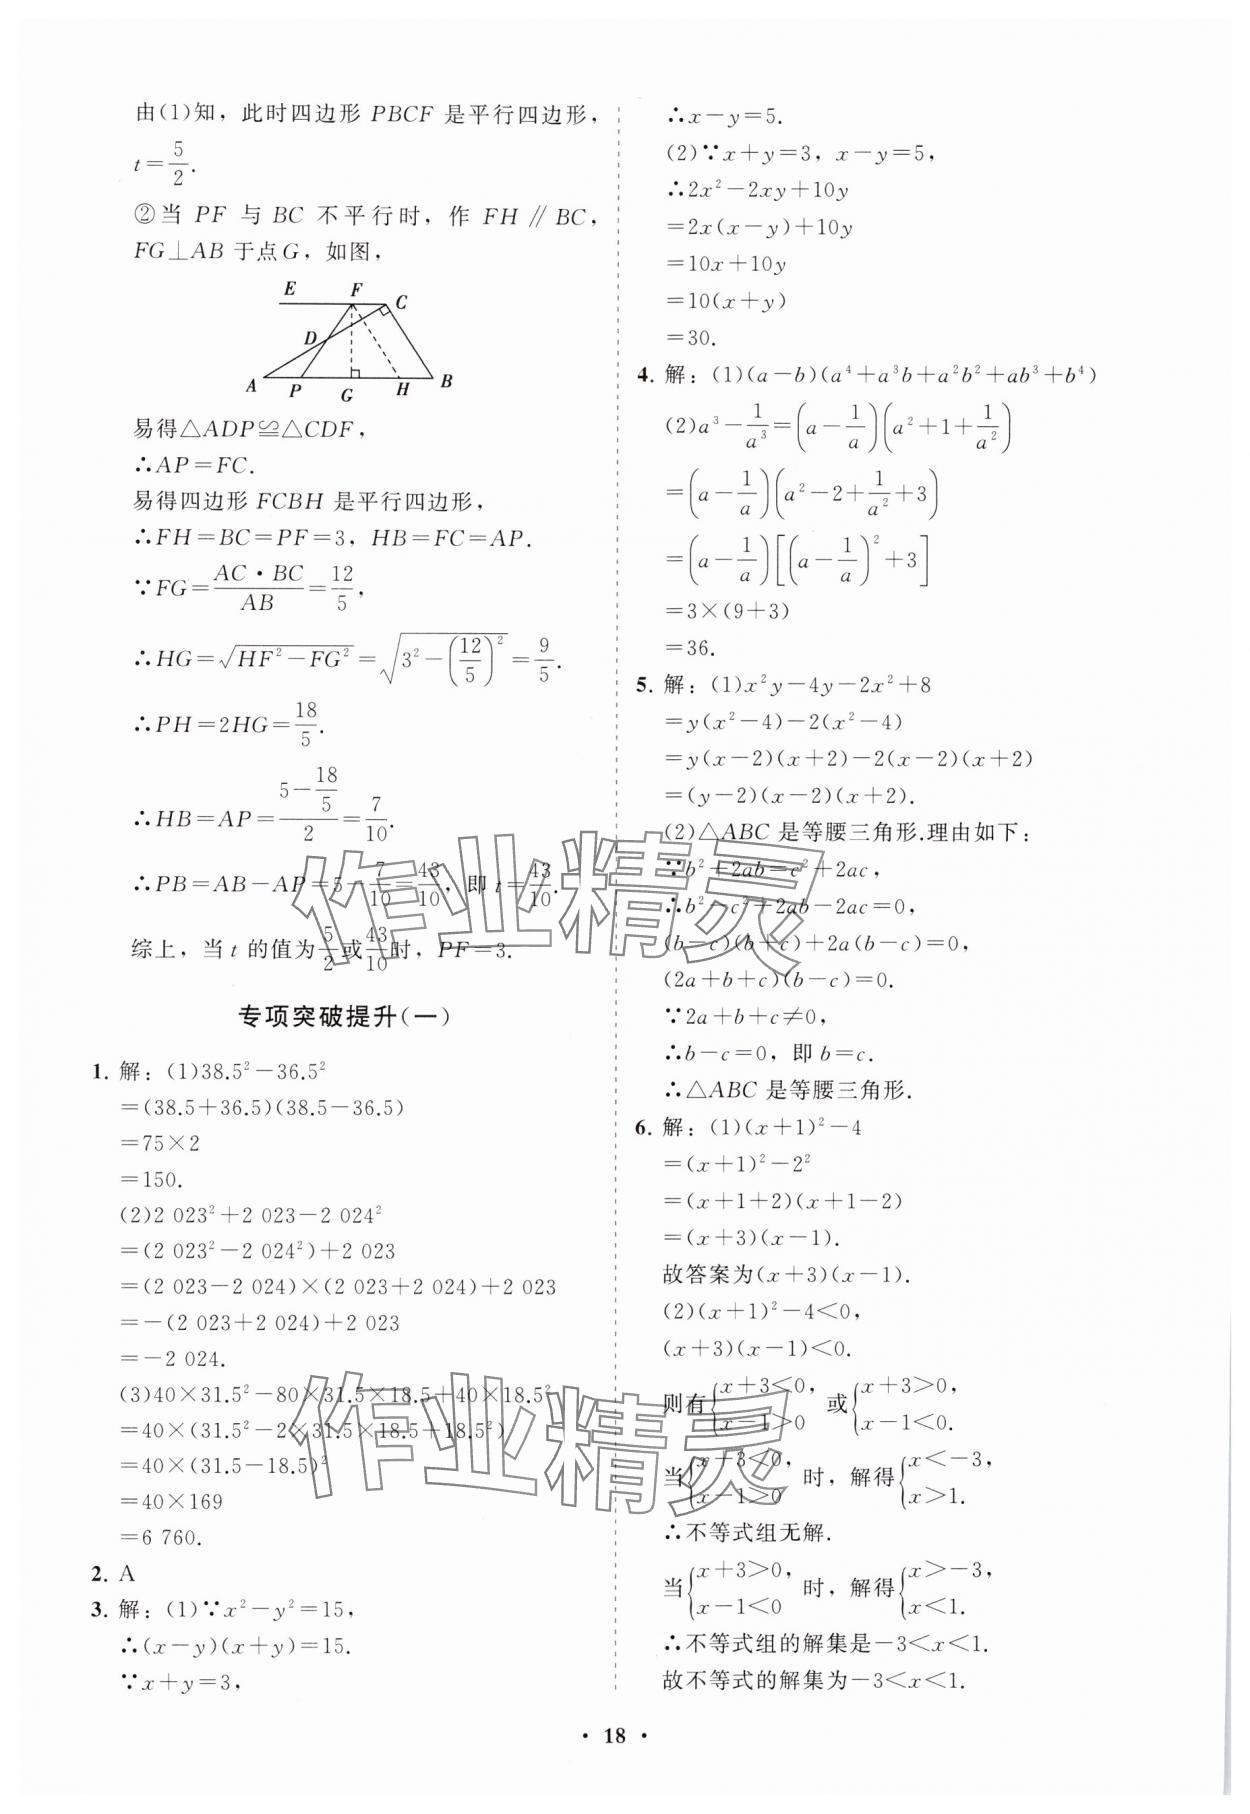 由(1)知，此时四边形 PBCF 是平行四边形，
t=5/2.
②当 PF 与 BC 不平行时，作 FH∥BC，
FG⊥AB 于点G，如图，
E F C
D
A P G H B
易得△ADP≌△CDF，
∴AP=FC.
易得四边形 FCBH 是平行四边形，
∴FH=BC=PF=3，HB=FC=AP.
∵FG=AC·BC/AB=12/5，
∴HG=√(HF²-FG²)=√(3²-(12/5)²)=9/5.
∴PH=2HG=18/5.
∴HB=AP=(5-18/5)/2=7/10.
∴PB=AB-AP=5-7/10=43/10，即 t=43/10.
综上，当 t 的值为5/2或43/10时，PF=3.
专项突破提升(一)
1. 解：(1)38.5²-36.5²
=(38.5+36.5)(38.5-36.5)
=75×2
=150.
(2)2 023²+2 023-2 024²
=(2 023²-2 024²)+2 023
=(2 023-2 024)×(2 023+2 024)+2 023
=-(2 023+2 024)+2 023
=-2 024.
(3)40×31.5²-80×31.5×18.5+40×18.5²
=40×(31.5²-2×31.5×18.5+18.5²)
=40×(31.5-18.5)²
=40×169
=6 760.
2. A
3. 解：(1)∵x²-y²=15，
∴(x-y)(x+y)=15.
∵x+y=3，
∴x-y=5.
(2)∵x+y=3，x-y=5，
∴2x²-2xy+10y
=2x(x-y)+10y
=10x+10y
=10(x+y)
=30.
4. 解：(1)(a-b)(a⁴+a³b+a²b²+ab³+b⁴)
(2)a³-1/a³=(a-1/a)(a²+1+1/a²)
=(a-1/a)(a²-2+1/a²+3)
=(a-1/a)[(a-1/a)²+3]
=3×(9+3)
=36.
5. 解：(1)x²y-4y-2x²+8
=y(x²-4)-2(x²-4)
=y(x-2)(x+2)-2(x-2)(x+2)
=(y-2)(x-2)(x+2).
(2)△ABC 是等腰三角形.理由如下：
∵b²+2ab=c²+2ac，
∴b²-c²+2ab-2ac=0，
(b-c)(b+c)+2a(b-c)=0，
(2a+b+c)(b-c)=0.
∵2a+b+c≠0，
∴b-c=0，即 b=c.
∴△ABC 是等腰三角形.
6. 解：(1)(x+1)²-4
=(x+1)²-2²
=(x+1+2)(x+1-2)
=(x+3)(x-1).
故答案为(x+3)(x-1).
(2)(x+1)²-4<0，
(x+3)(x-1)<0.
则有{x+3<0，x-1>0 或{x+3>0，x-1<0.
当{x+3<0，x-1>0 时，解得{x<-3，x>1.
∴不等式组无解.
当{x+3>0，x-1<0 时，解得{x>-3，x<1.
∴不等式组的解集是-3<x<1.
故不等式的解集为-3<x<1.
作业精灵
作业精灵
• 18 •